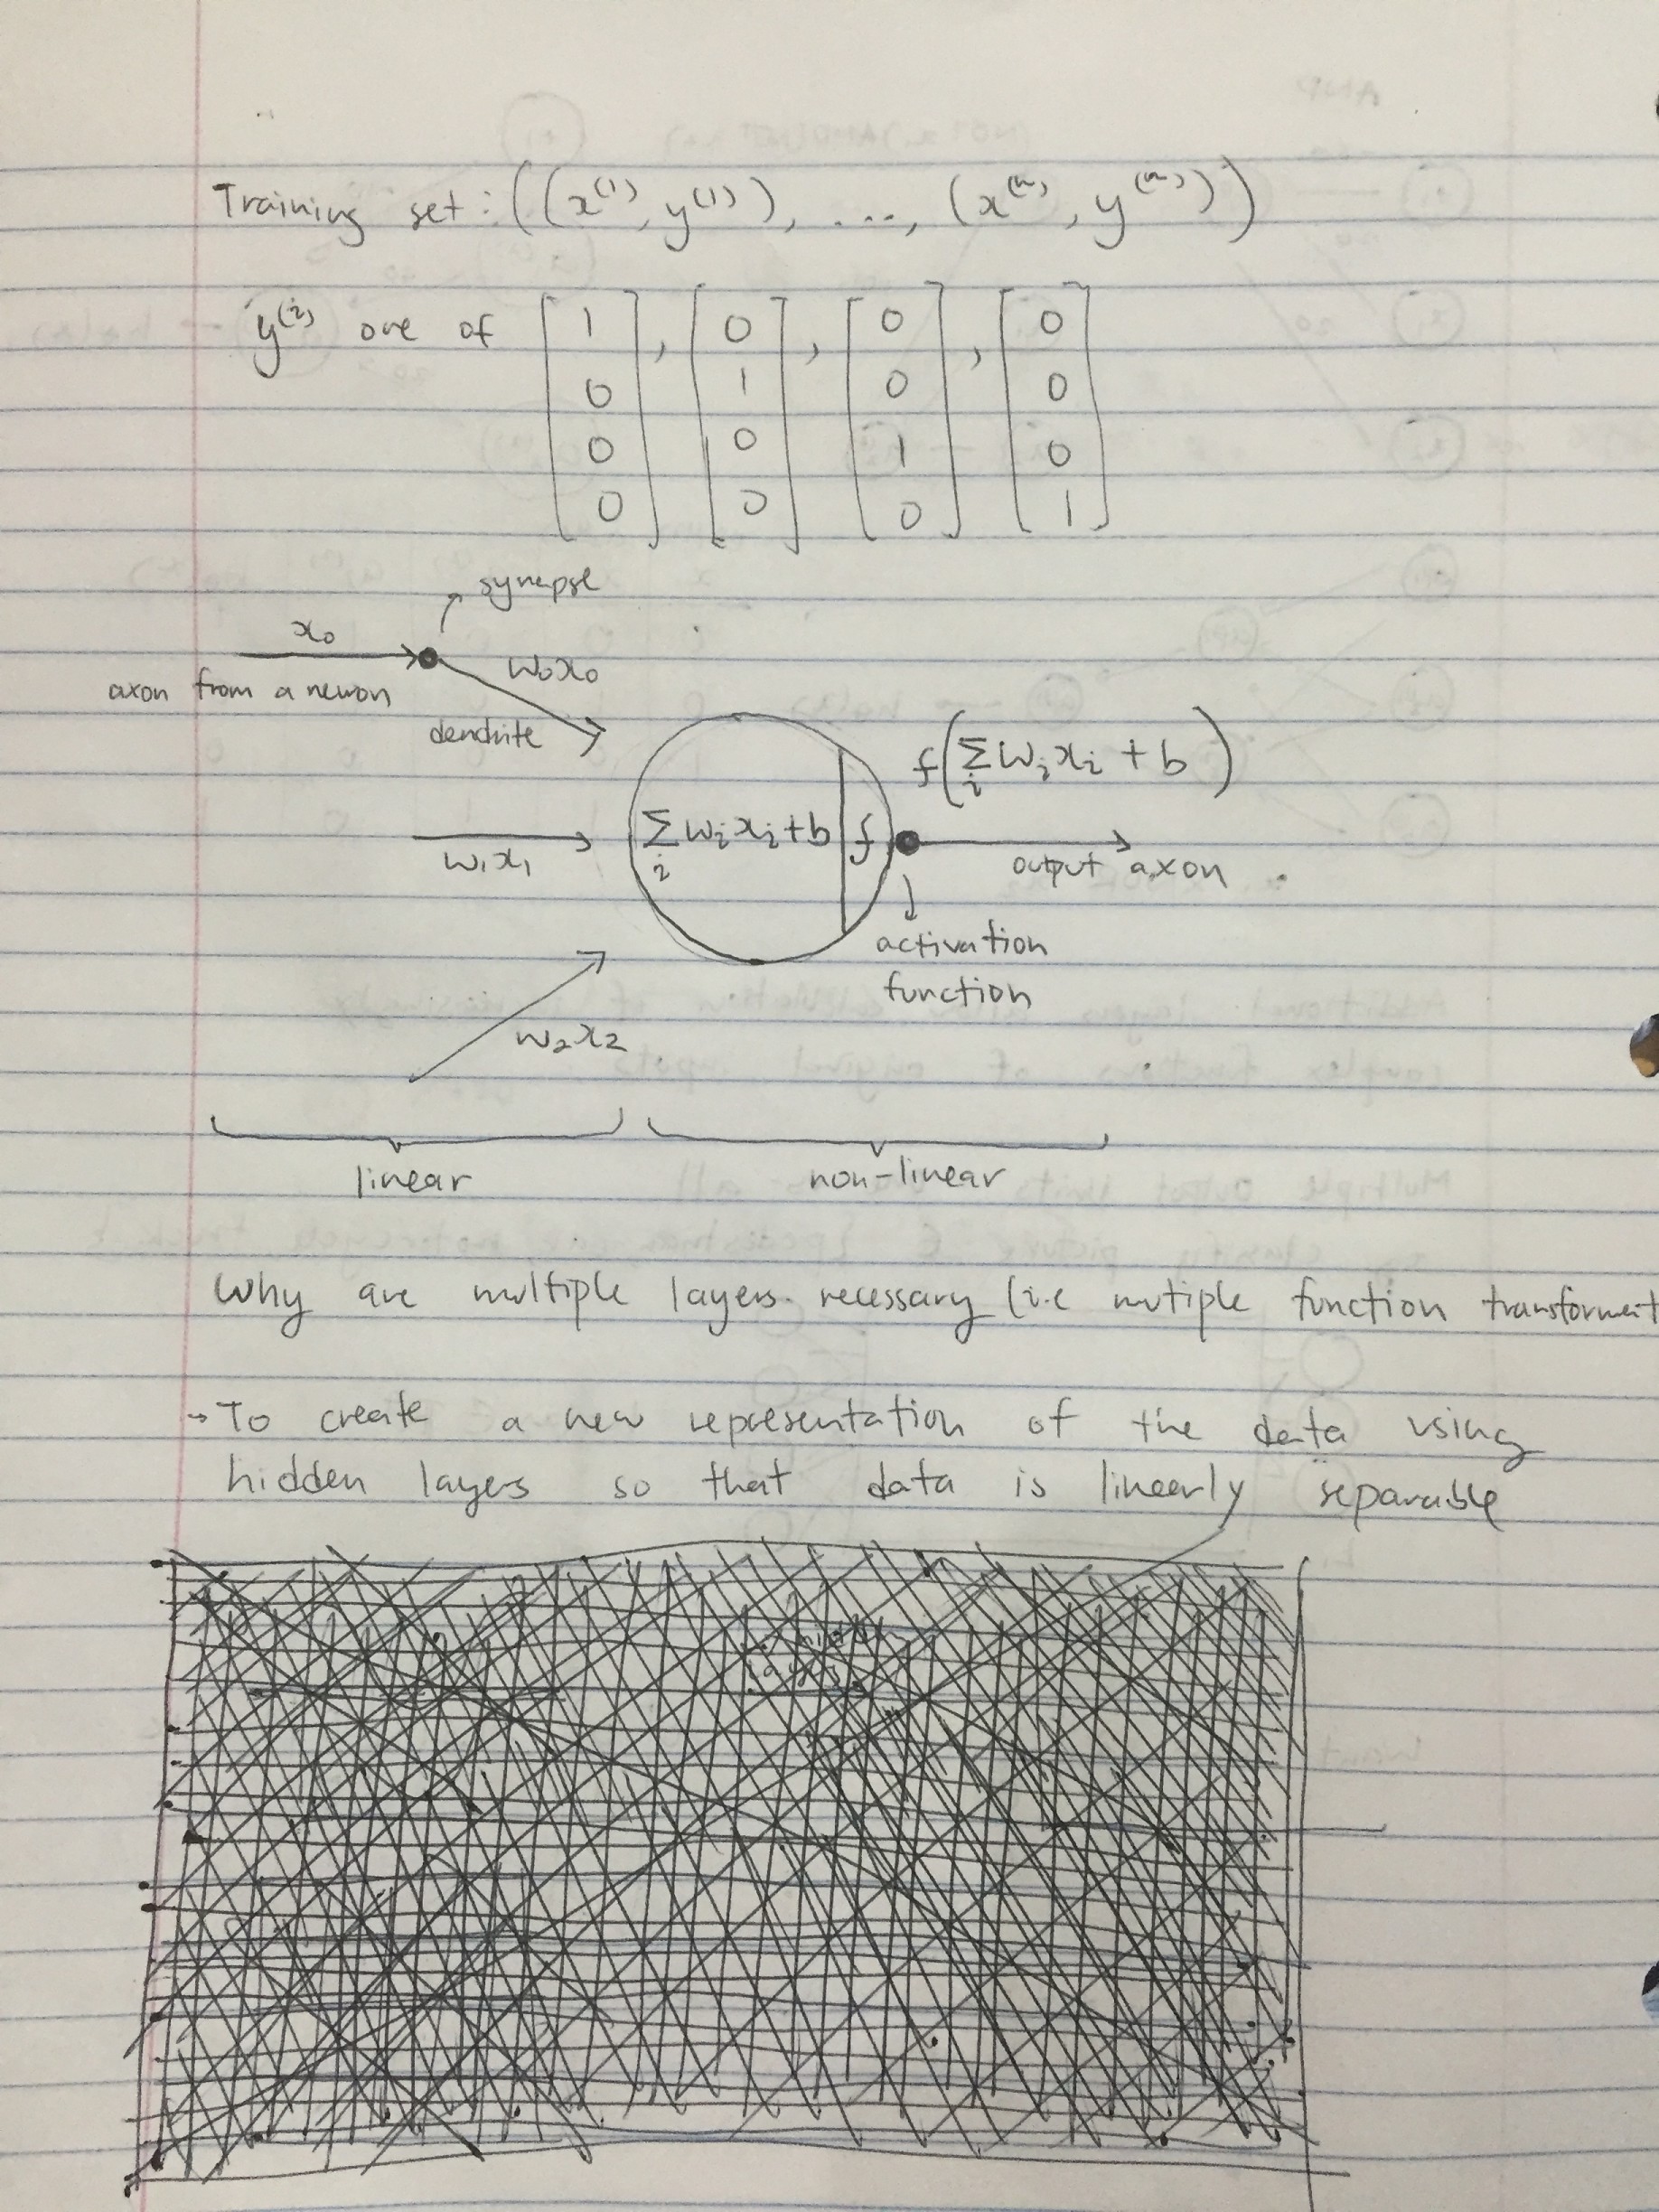 Training set: ((x⁽¹⁾, y⁽¹⁾), ...., (x⁽ⁿ⁾, y⁽ⁿ⁾))
y⁽ⁱ⁾ one of [1 0 0 0], [0 1 0 0], [0 0 1 0], [0 0 0 1]
synapse
x₀
axon from a neuron
w₀x₀
dendrite
f(Σᵢ wᵢxᵢ + b)
Σᵢ wᵢxᵢ+b f
w₁x₁
output axon
activation
function
w₂x₂
linear
non-linear
Why are multiple layers necessary (i.e mutiple function transformat
→ To create a new representation of the data using
hidden layers so that data is linearly separable